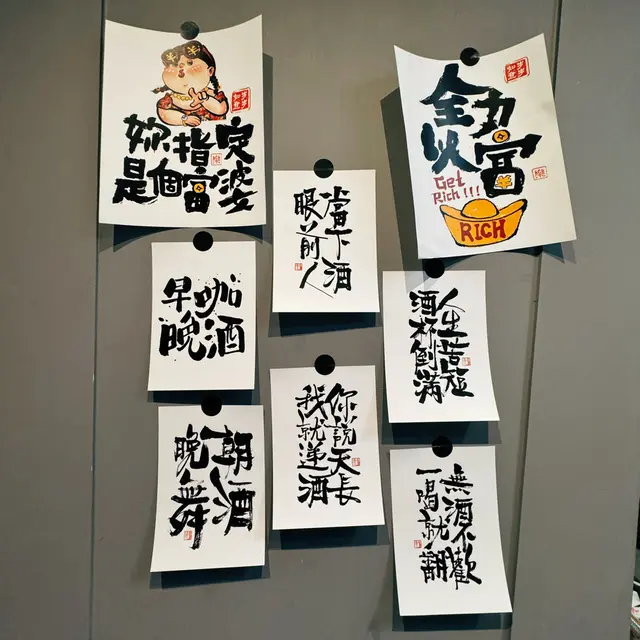 妳指定
是個富婆
全力
以富
Get
Rich!!!
¥
RICH
當下酒
眼前人
早咖
晚酒
人生苦短
酒杯倒滿
朝酒
晚舞
你說天長
我就递酒
無酒不歡
一喝就翻